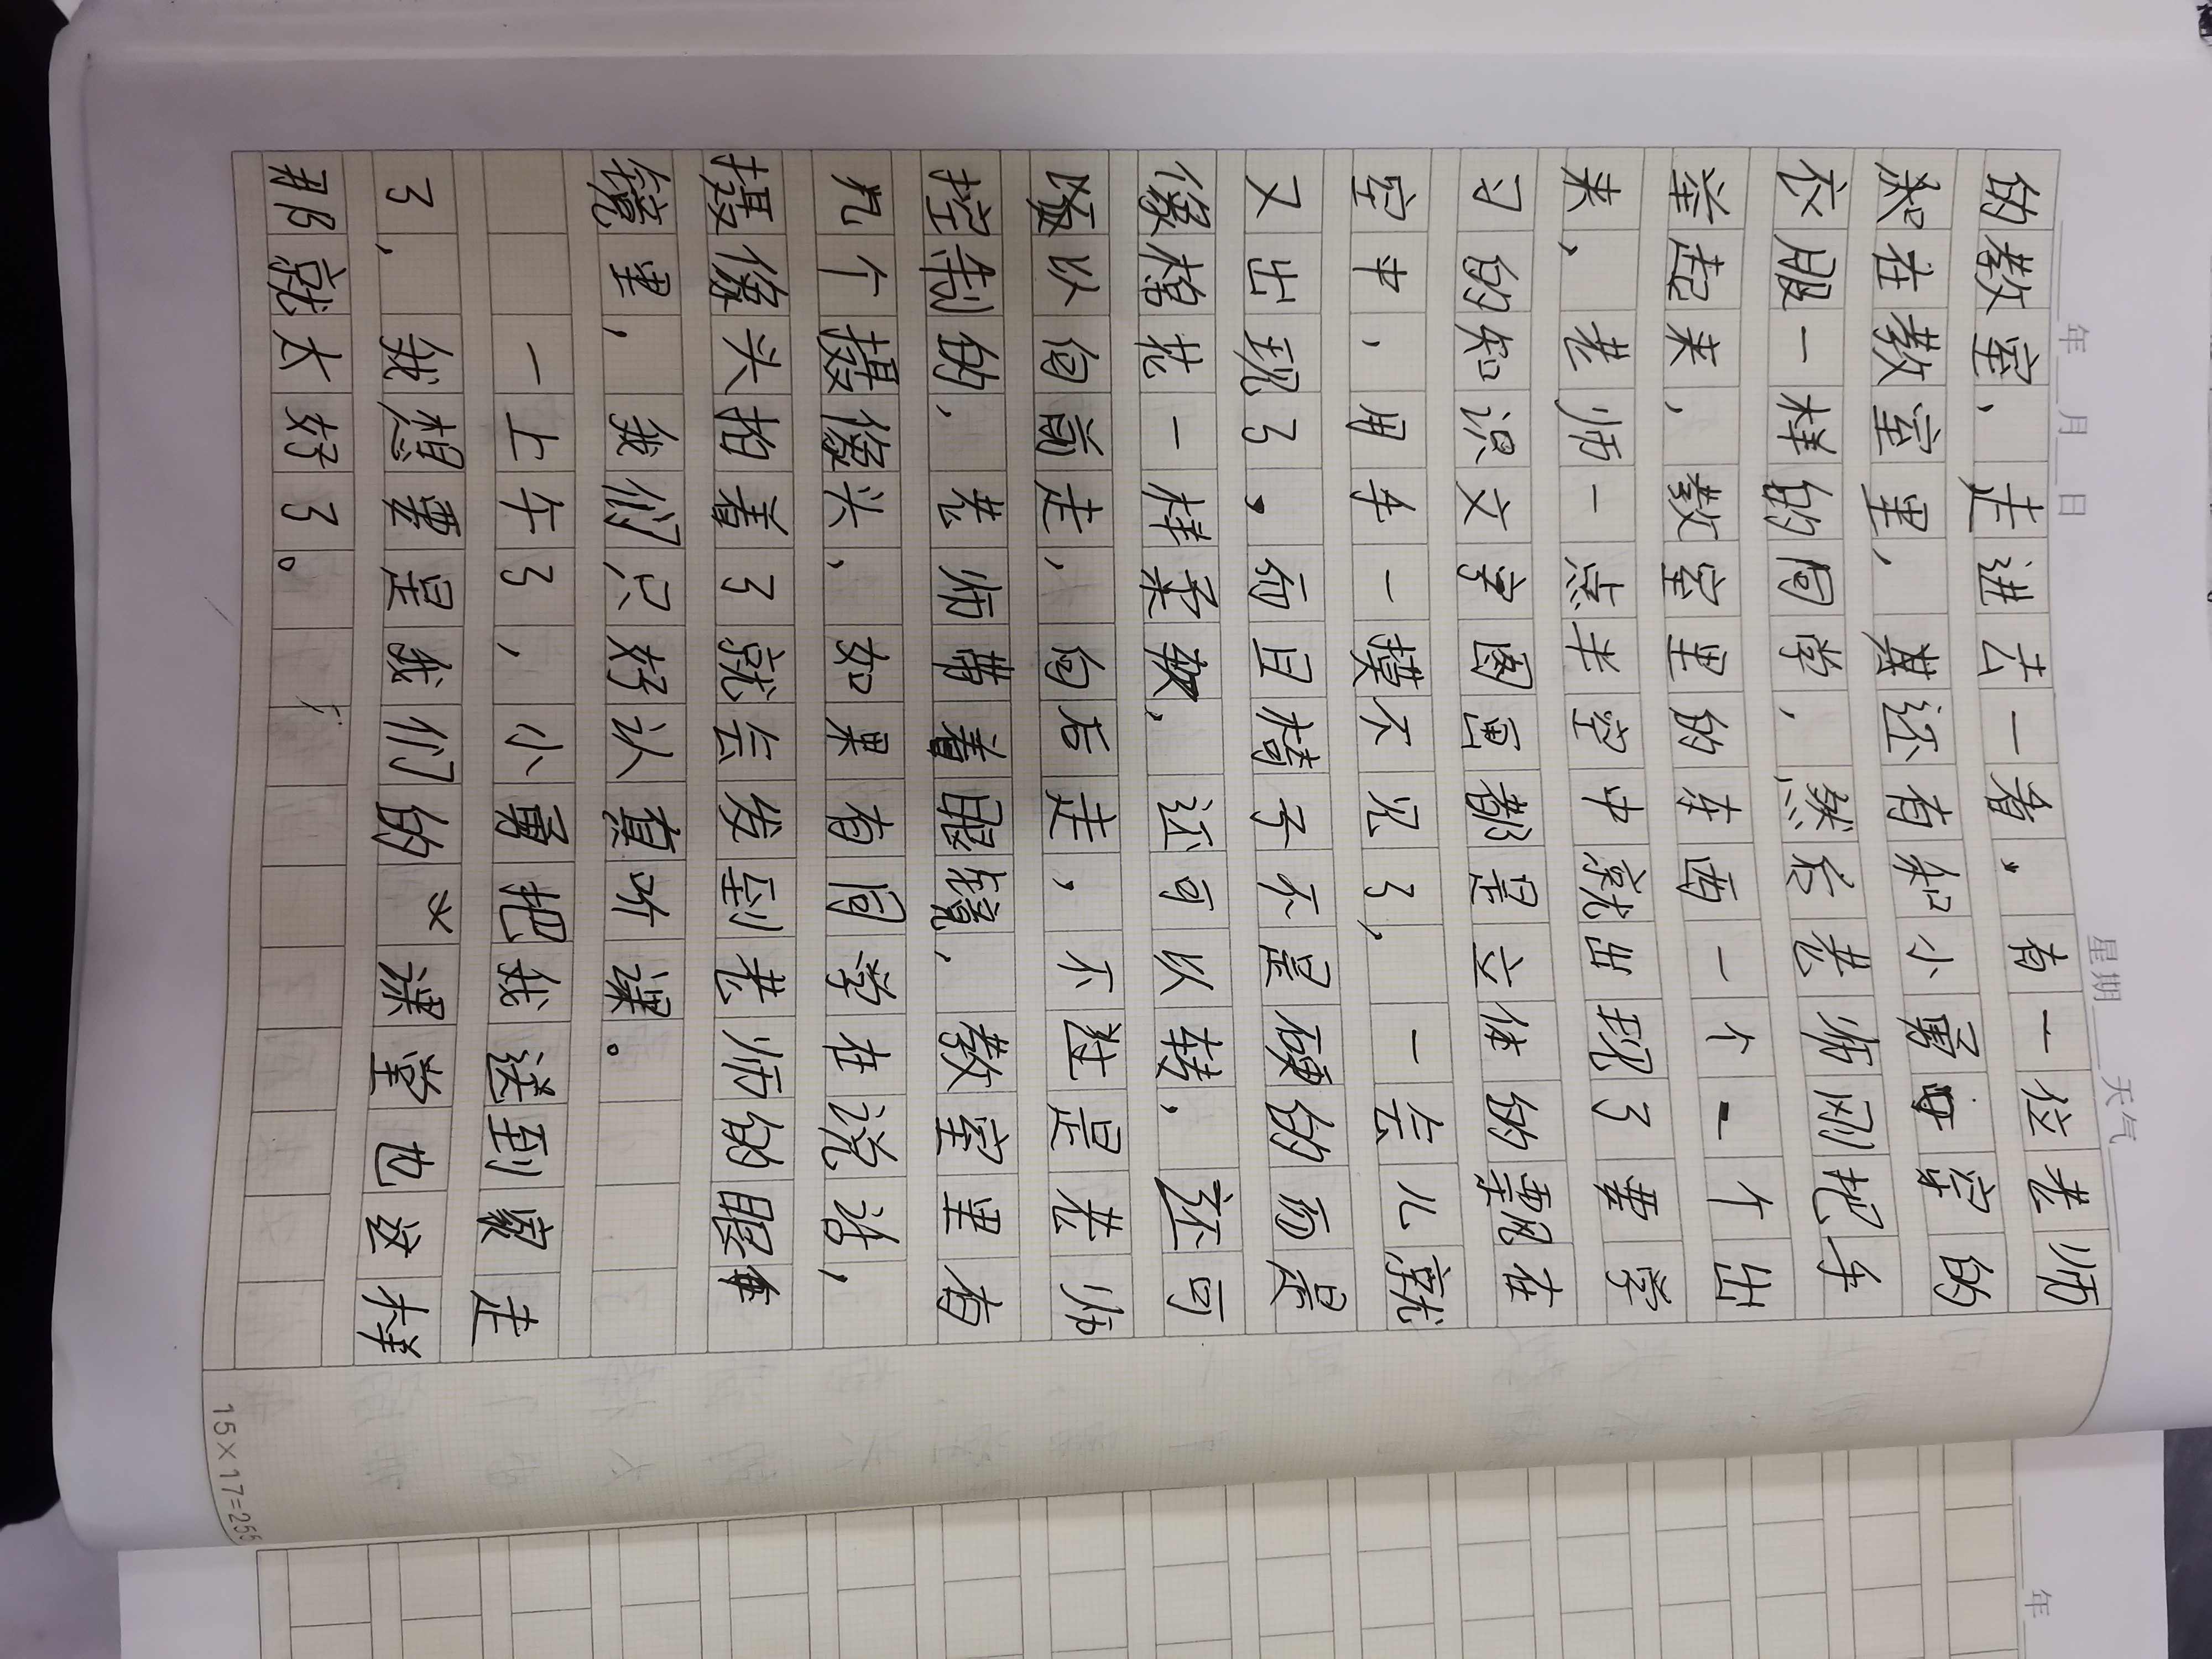 年 月 日 星期 天气
的教室，走进去一看，有一位老师
和在教室里，其还有和小勇穿的
衣服一样的同学，然后老师刚把手
举起来，教室里的东西一个一个出
来，老师一点半空中就出现了要学
习的知识文字图画都是立体的飘在
空中，用手一摸不见了，一会儿就
又出现了，而且椅子不是硬的而是
像棉花一样柔软，还可以转，还可
以向前走，向后走，不过是老师
控制的，老师带着眼镜，教室里有
几个摄像头，如果有同学在说话，
摄像头拍着了就会发到老师的眼
镜里，我们只好认真听课。
一上午了，小勇把我送到家走
了，我想要是我们的 课堂也这样
那就太好了。
15×17=255
年